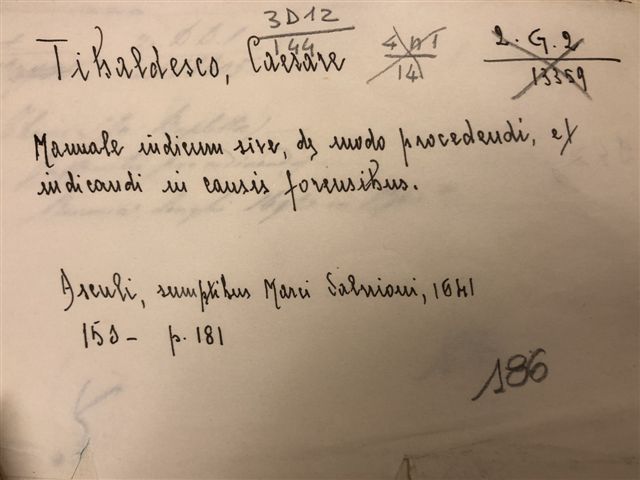 3D12
144
4 n 1
14
2. G. 2
13359
Tibaldesco, Caesare
Manuale iudicum sive, de modo procedendi, et
iudicandi in causis forensibus.
Asculi, sumptibus Marci Salvioni, 1641
153- p. 181
186